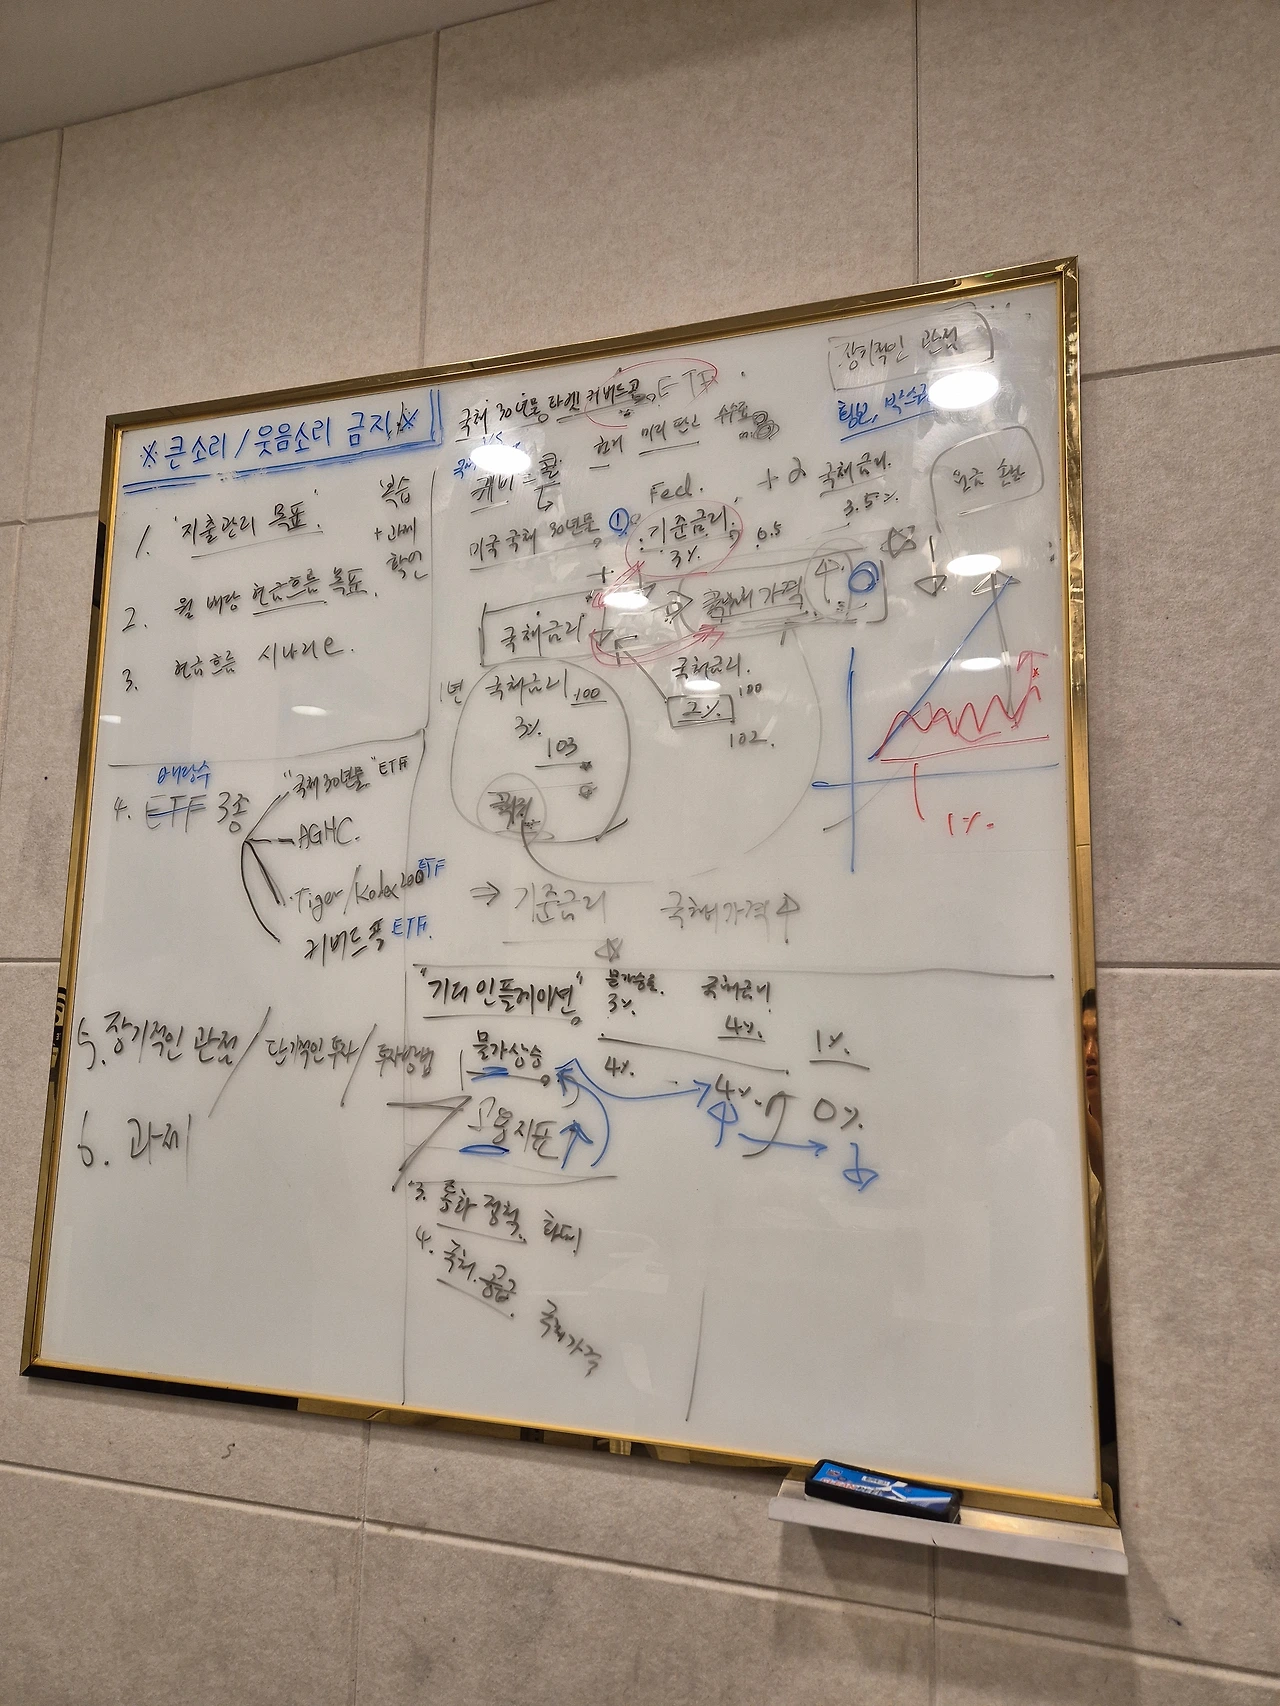 ※ 큰소리 / 웃음소리 금지 ※
1. '지출관리 목표'
복습
+ 과제
확인
2. 월 배당 현금흐름 목표.
3. 현금흐름 시나리오.
배당주
4. ETF 3종
"국채 30년물" ETF
AGHC.
Tiger/Kodex 200 ETF
커버드콜 ETF.
5. 장기적인 관점 / 단기적인 투자 / 투자방법
6. 과제
국채 30년물 타겟 커버드콜 ETF
장기적인 관점
커버드콜
미국 국채 30년물
①
Fed.
기준금리.
3%
0.5
+ α 국채금리.
3.5%
원금
국채금리
국채 가격
1년
국채금리 100
3%
103
국채금리.
2%
100
102.
1%.
⇒ 기준금리
국채가격
"기대 인플레이션"
물가상승
물가상승률.
3%
국채금리
4%.
1%.
4%.
4%
0%.
고용지표
3. 통화정책.
4. 국채.공급.
국채가격